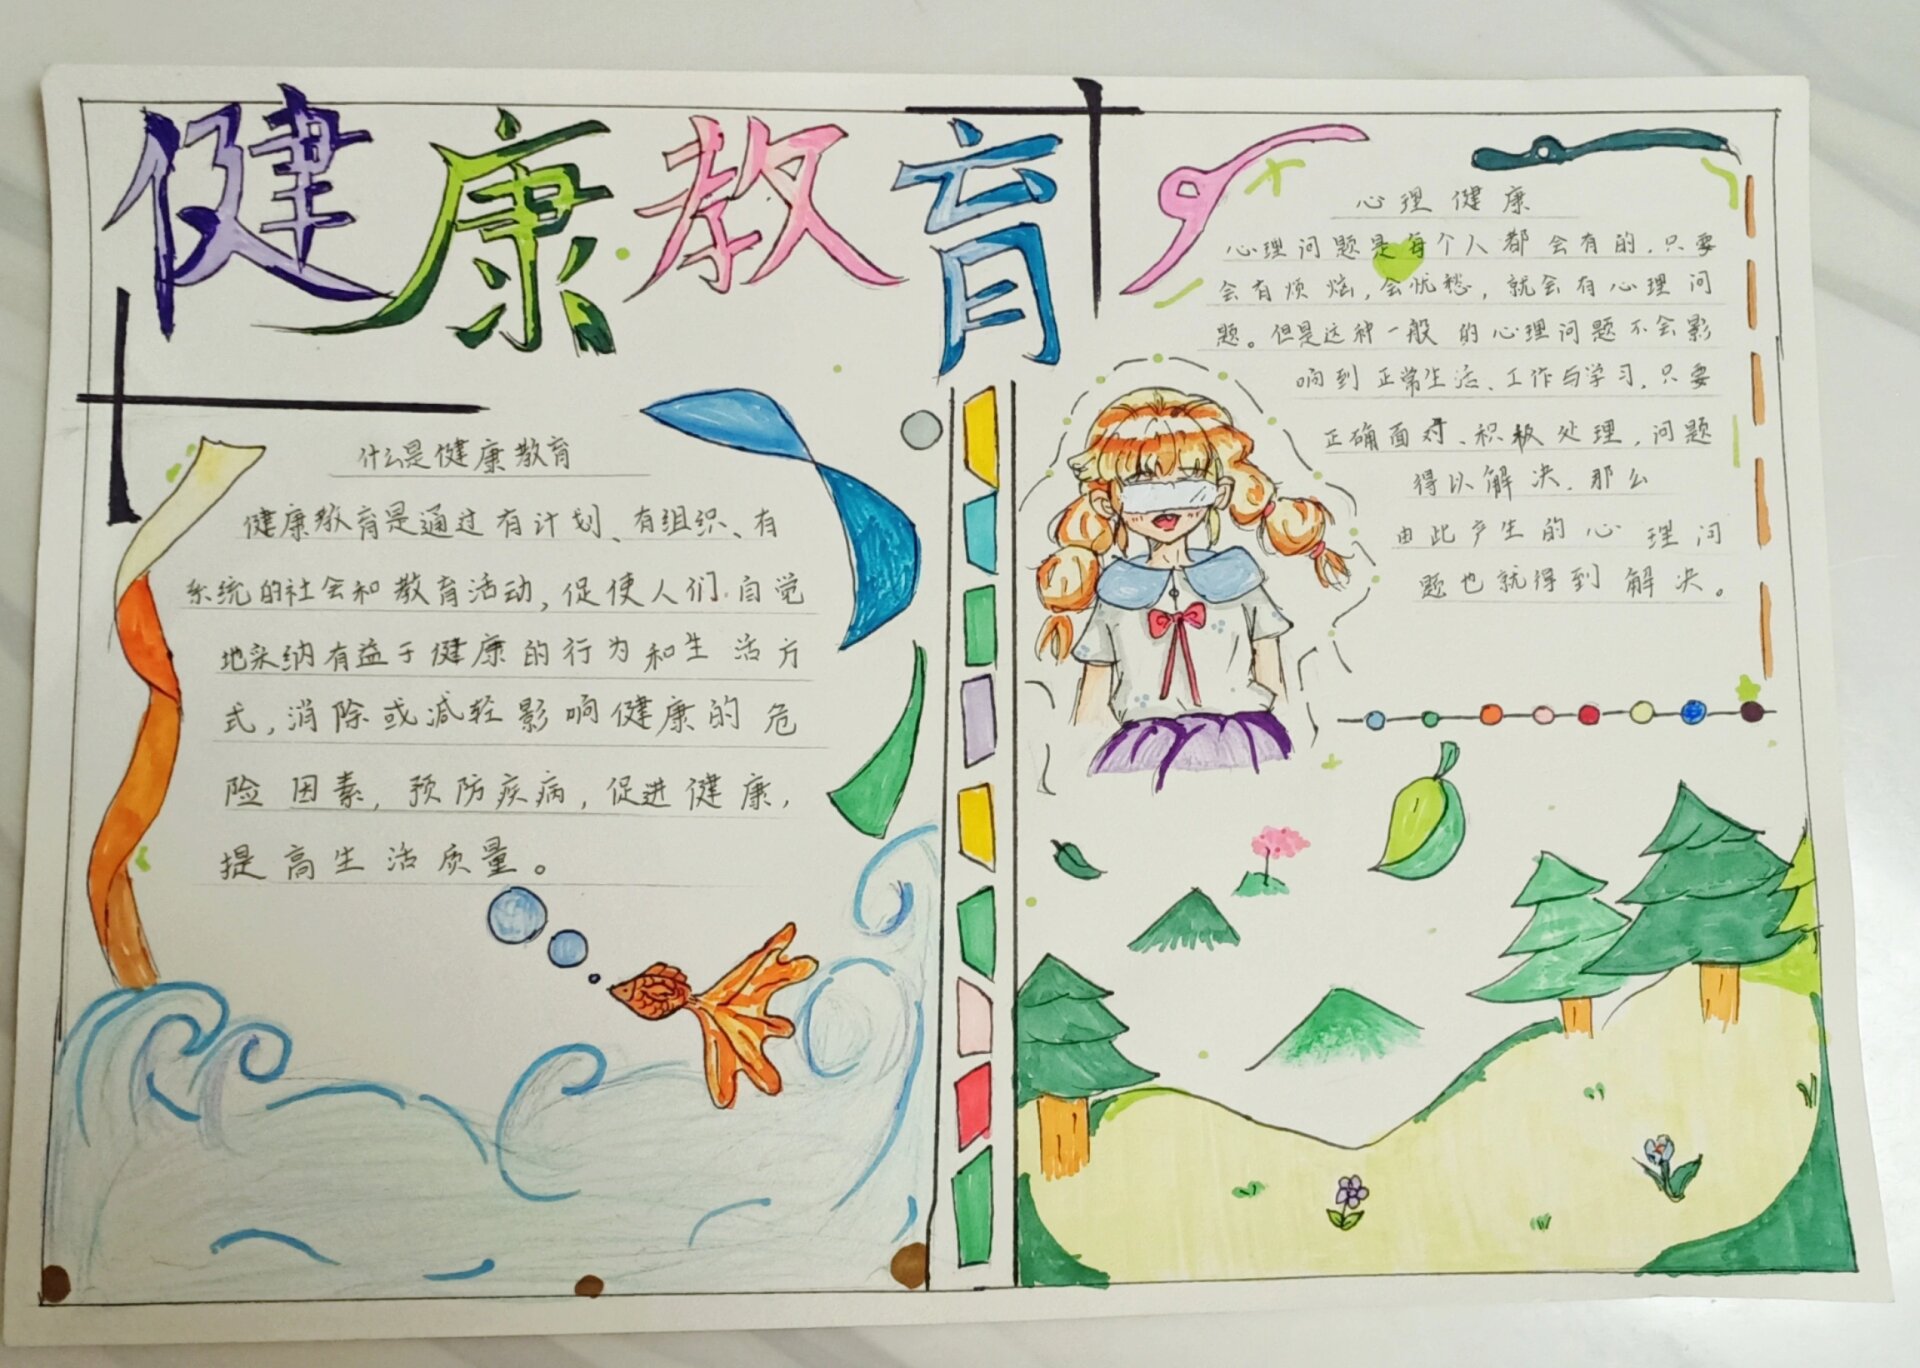 健康教育
什么是健康教育
健康教育是通过有计划、有组织、有
系统的社会和教育活动,促使人们自觉
地采纳有益于健康的行为和生活方
式,消除或减轻影响健康的危
险因素,预防疾病,促进健康,
提高生活质量。
心理健康
心理问题是每个人都会有的.只要
会有烦恼,会忧愁,就会有心理问
题。但是这种一般的心理问题不会影
响到正常生活、工作与学习.只要
正确面对、积极处理,问题
得以解决.那么
由此产生的心理问
题也就得到解决。